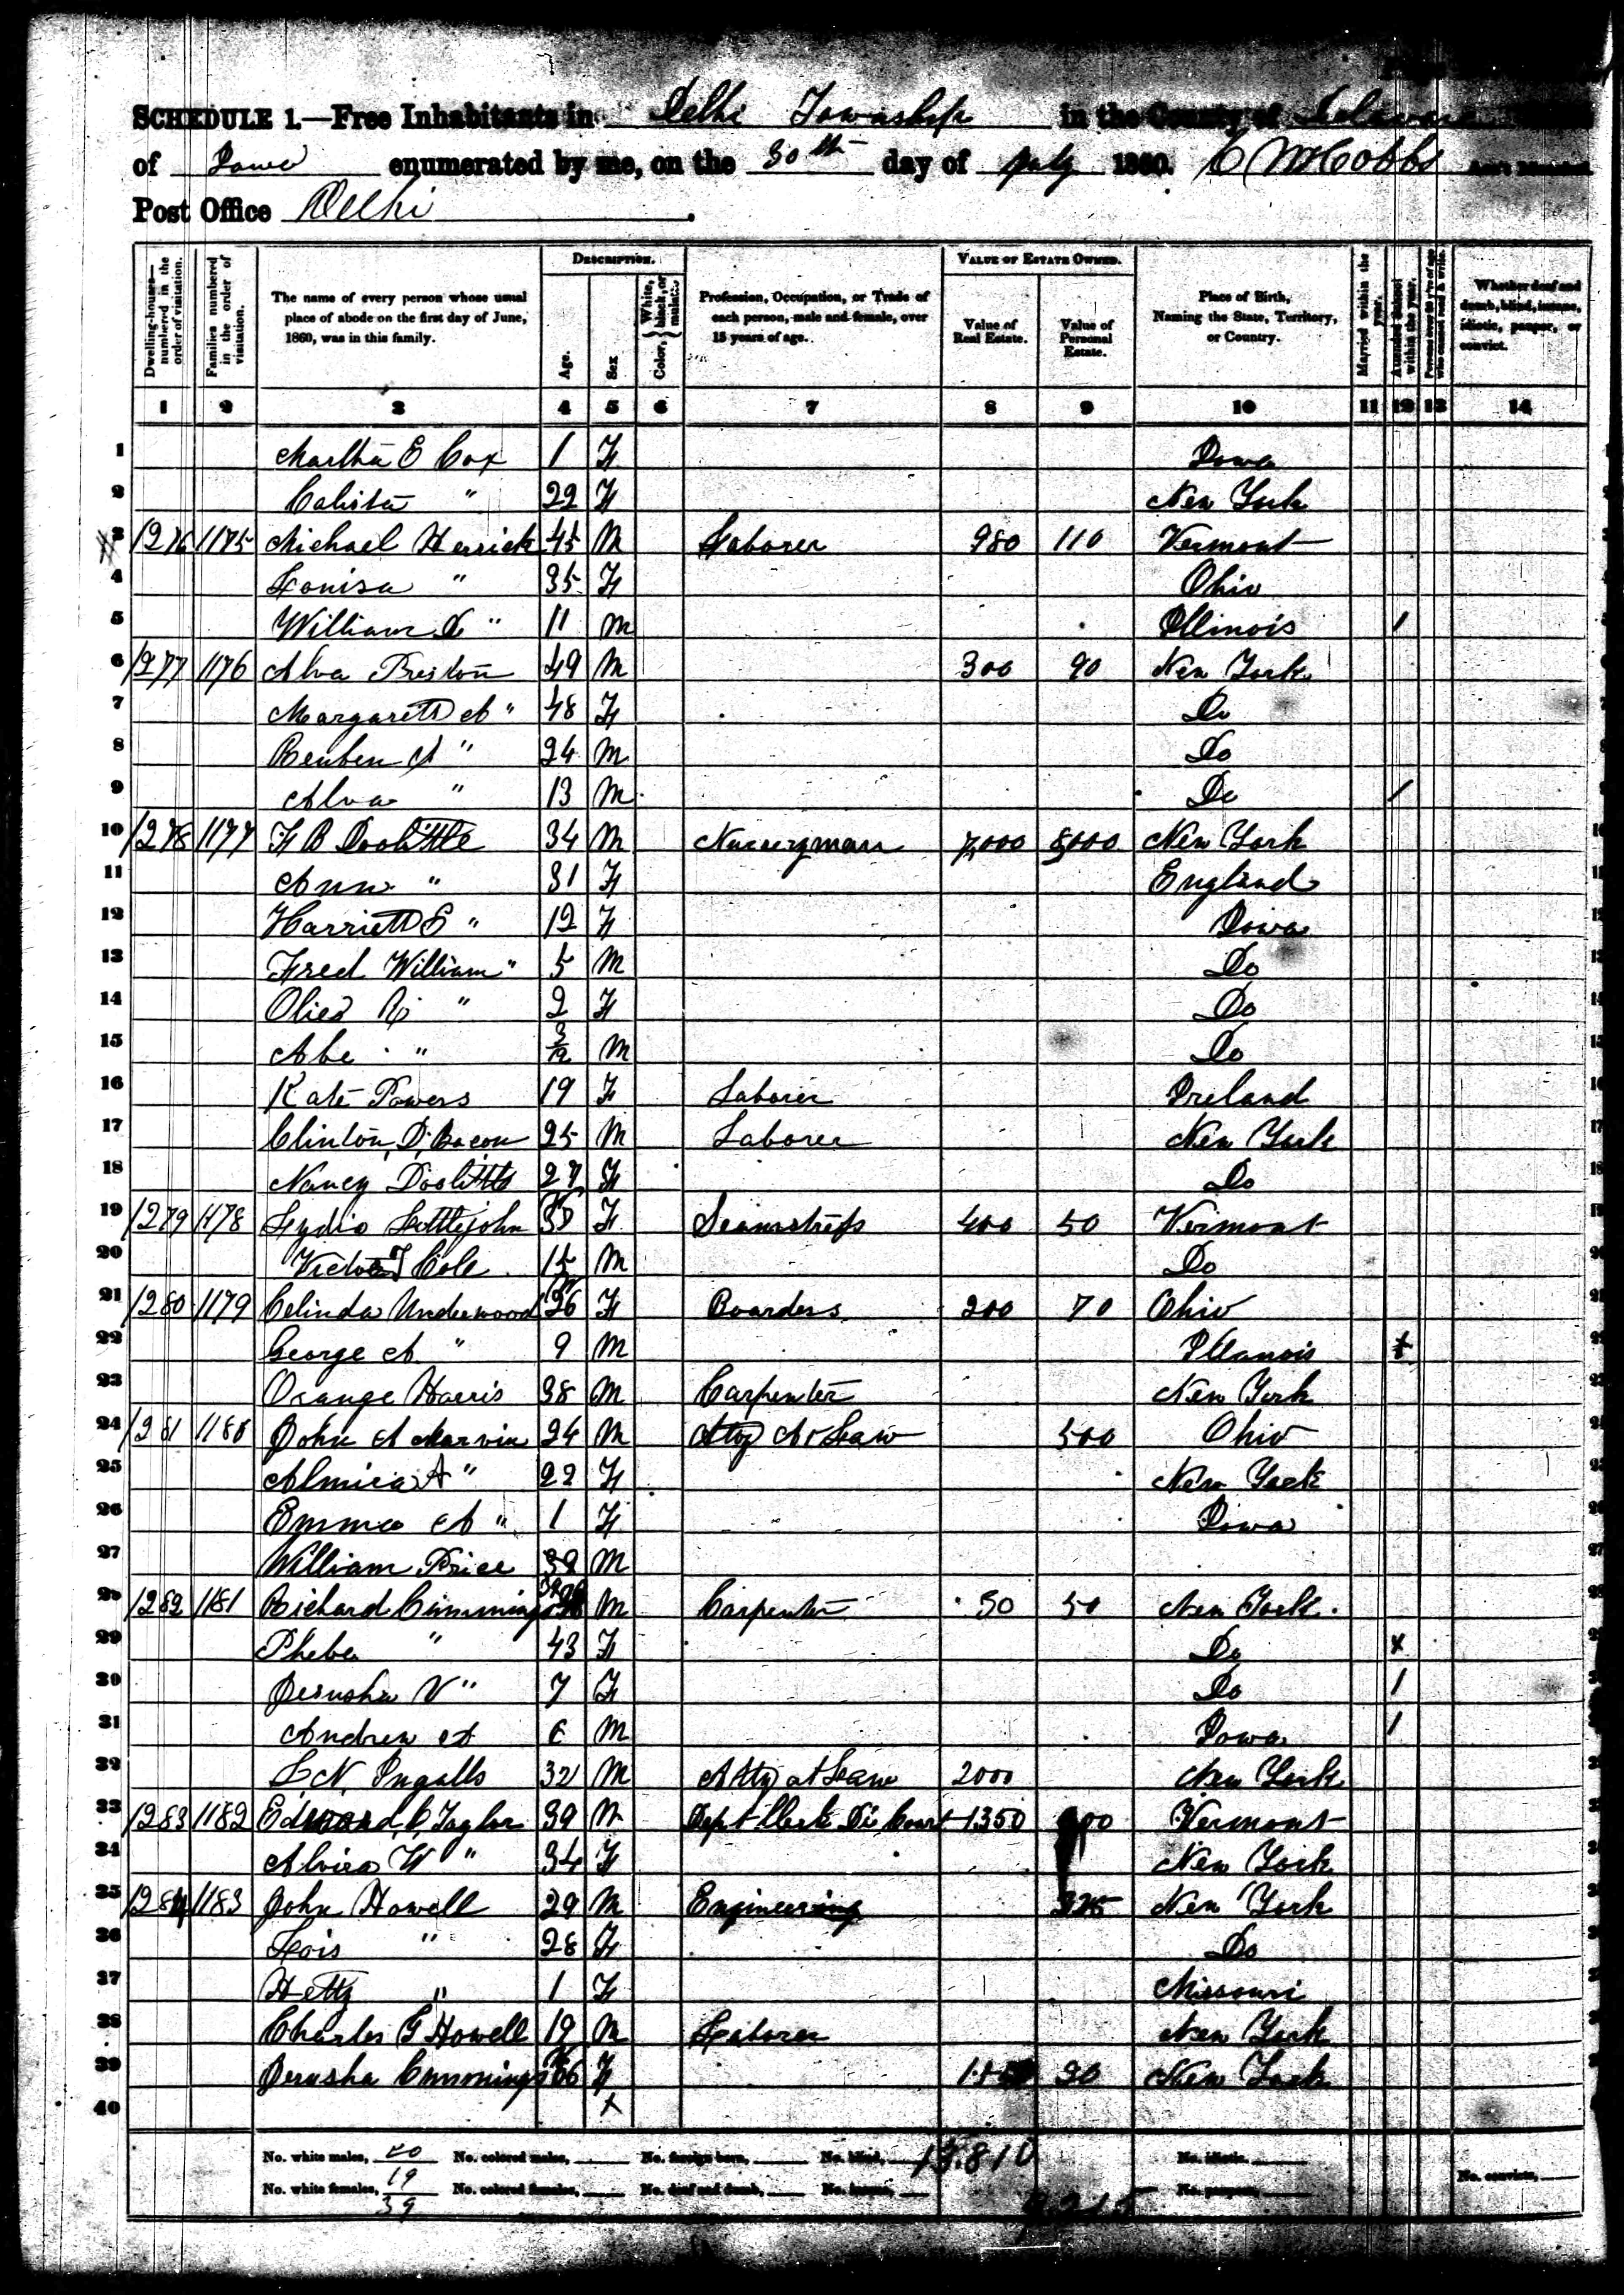 SCHEDULE 1.—Free Inhabitants in Delhi Township in the County of Delaware
of Iowa enumerated by me, on the 30th day of July 1860. C M Cobbs Ass't Marshal.
Post Office Delhi.
Dwelling-houses—numbered in the order of visitation. Families numbered in the order of visitation. The name of every person whose usual place of abode on the first day of June, 1860, was in this family. DESCRIPTION. Age. Sex Color, { White, black, or mulatto Profession, Occupation, or Trade of each person, male and female, over 15 years of age. VALUE OF ESTATE OWNED. Value of Real Estate. Value of Personal Estate. Place of Birth, Naming the State, Territory, or Country. Married within the year. Attended School within the year. Persons over 20 y'rs of age who cannot read & write. Whether deaf and dumb, blind, insane, idiotic, pauper, or convict.
1 2 3 4 5 6 7 8 9 10 11 12 13 14
1 Martha E Cox 1 F Iowa
2 Calista " 22 F New York
3 1276 1175 Michael Herrick 45 M Laborer 980 110 Vermont
4 Louisa " 35 F Ohio
5 William " 11 M Illinois /
6 1277 1176 Alva Preston 49 M 300 90 New York
7 Margarett A " 48 F Do
8 Reuben A " 24 M Do
9 Alva " 13 M Do /
10 1278 1177 F B Doolittle 34 M Nurseryman 7,000 8,000 New York
11 Ann " 31 F England
12 Harriett E " 12 F Iowa
13 Fred William " 5 M Do
14 " 2 F Do
15 Abe " 3/12 M Do
16 Kate Powers 19 F Laborer Ireland
17 Clinton D. Bacon 25 M Laborer New York
18 Nancy Doolittle 27 F Do
19 1279 1178 Lydia Littlejohn F Seamstress 400 50 Vermont
20 Victor Cole 15 M Do
21 1280 1179 Celinda Underwood 36 F Boarders 200 70 Ohio
22 George A " 9 M Illanois
23 Orange Harris 38 M Carpenter New York
24 1281 1180 John A Marvin 24 M Atty At Law 500 Ohio
25 Almira A " 22 F New York
26 Emma A " 1 F Iowa
27 William Price 32 M
28 1282 1181 Richard Cummings M Carpenter 50 50 New York.
29 Phebe " 43 F Do x
30 Jerusha V " 7 F Do /
31 Andrew A 6 M Iowa /
32 L N Ingalls 32 M Atty at Law 2000 New York
33 1283 1182 Edward C Taylor 39 M Dept Clerk Di Court 1350 Vermont
34 Alvira W " 34 F New York
35 1284 1183 John Howell 29 M Engineer 325 New York
36 Lois " 28 F Do
37 Hetty " 1 F Missouri
38 Charles G Howell 19 M Laborer New York
39 Jerusha Cummings 66 F 30 New York
40 x
No. white males, 20 No. colored males, No. foreign born, No. blind, 13.810 No. idiotic.
No. white females, 19 No. colored females, No. deaf and dumb, No. insane, No. paupers, No. convicts,
39